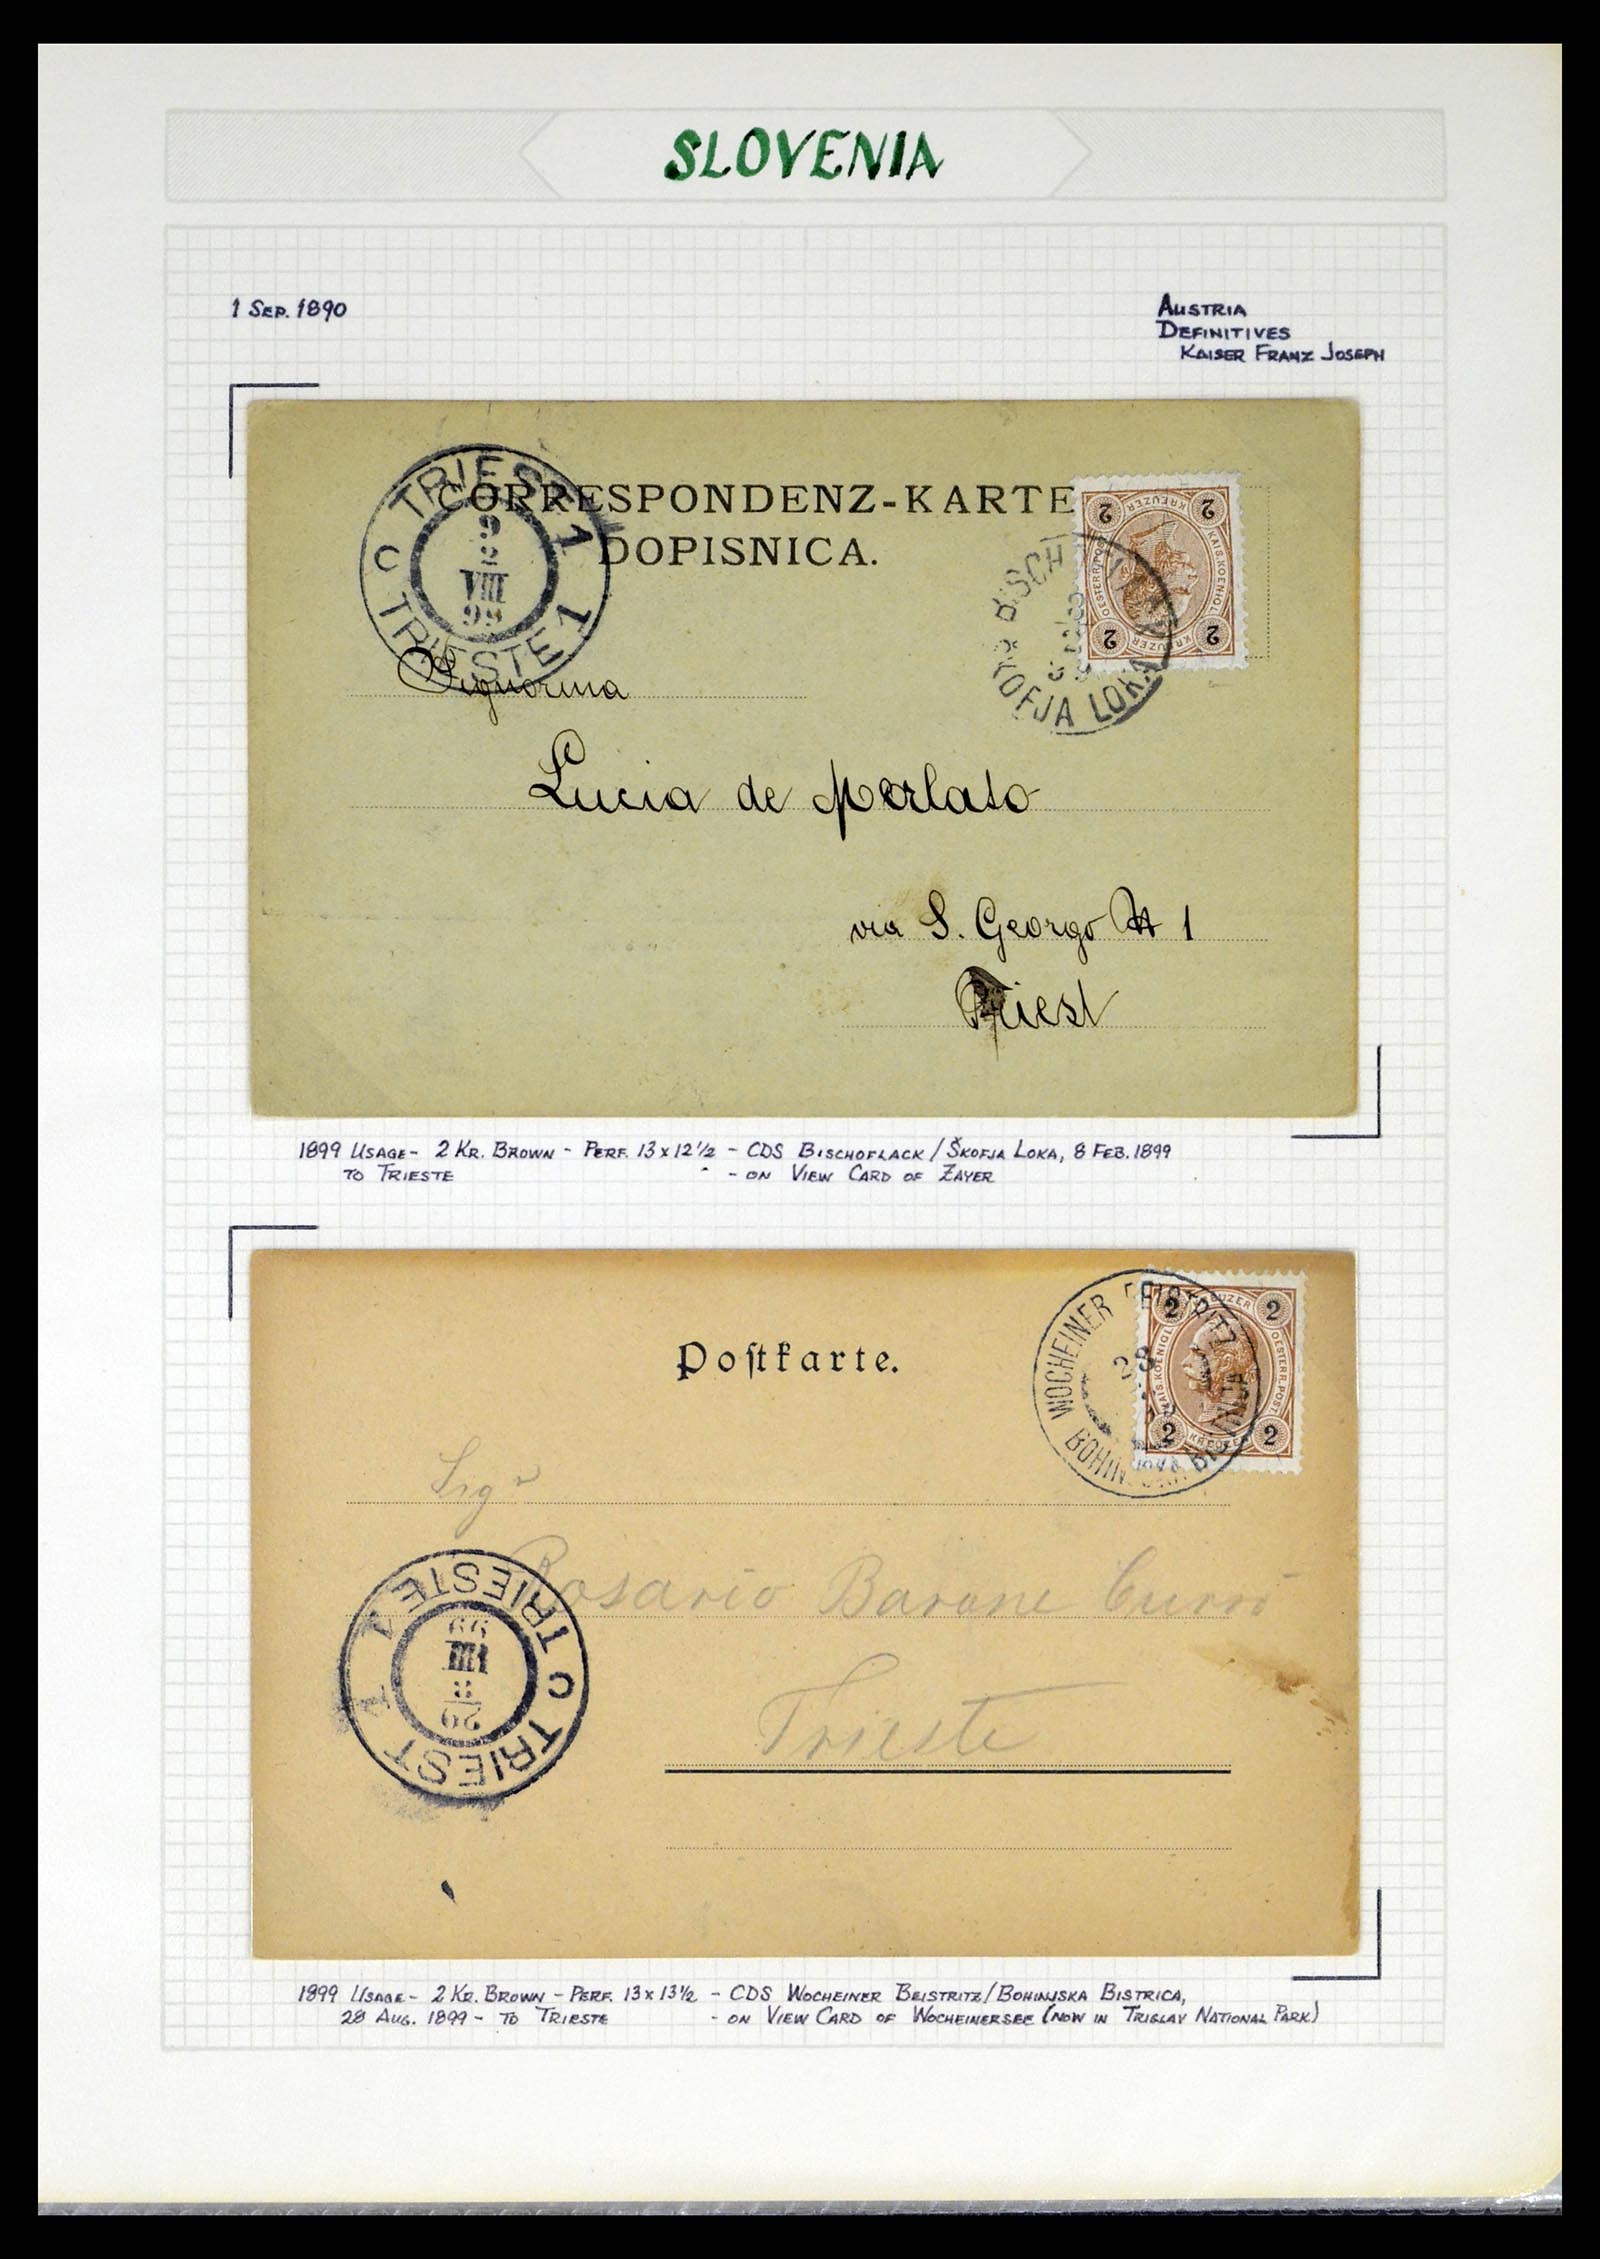 SLOVENIA
1 SEP. 1890
AUSTRIA
DEFINITIVES
KAISER FRANZ JOSEPH
TRIEST 1
9
2
VIII
99
C
TRIESTE 1
CORRESPONDENZ-KARTE
DOPISNICA.
2 2
KREUZER
KAIS. KOENIGL.
OESTERR. POST.
KREUZER
2 2
BISCH
KOFJA LOKA
Signorina
Lucia de Merlato
via S. Georgo 1
Triest
1899 USAGE - 2 KR. BROWN - PERF. 13 x 12 1/2 - CDS BISCHOFLACK / ŠKOFJA LOKA, 8 FEB. 1899
TO TRIESTE - ON VIEW CARD OF ZAYER
WOCHEINER FEISTRITZ
28
BOHIN BISTRICA
2 KREUZER 2
KAIS. KOENIGL.
OESTERR. POST.
2 KREUZER 2
Postkarte.
Sigr
Rosario Barone Currò
Trieste
TRIEST 1
29
8
VIII
99
C
TRIESTE 1
1899 USAGE - 2 KR. BROWN - PERF. 13 x 13 1/2 - CDS WOCHEINER BEISTRITZ / BOHINJSKA BISTRICA,
28 AUG. 1899 - TO TRIESTE - ON VIEW CARD OF WOCHEINERSEE (NOW IN TRIGLAV NATIONAL PARK)